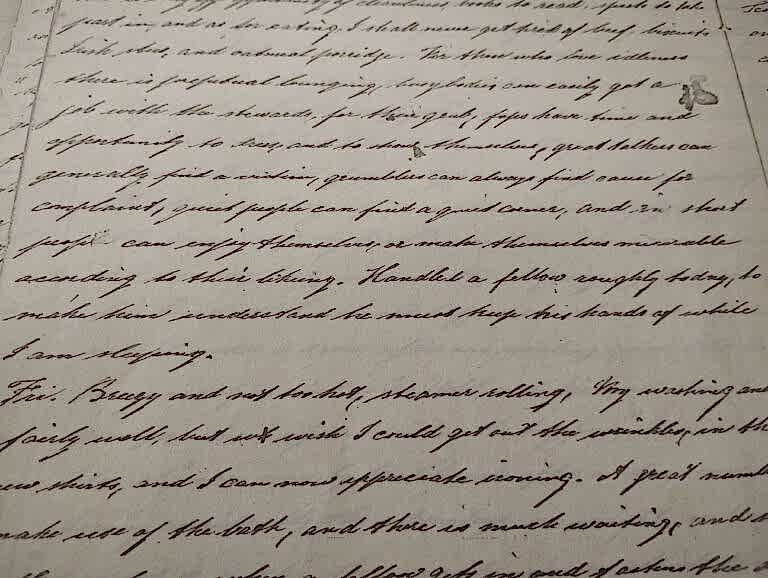 opportunity of cleanliness, books to read, sports to take
part in, and as for eating, I shall never get tired of beef, biscuits
Irish stew, and oatmeal porridge. For those who love idleness
there is perpetual lounging, busybodies can easily get a
job with the stewards, for their grub, fops have time and
opportunity to dress, and to show themselves, great talkers can
generally find a victim, grumblers can always find cause for
complaint, quiet people can find a quiet corner, and in short
people can enjoy themselves, or make themselves miserable
according to their liking. Handled a fellow roughly today, to
make him understand he must keep his hands of while
I am sleeping.
Fri. Breezy and not too hot, steamer rolling, My washing
fairly well, but wish I could get out the wrinkles, in
shirts, and I can now appreciate ironing. A great
make use of the bath, and there is much waiting, and
a fellow gets in and fastens the